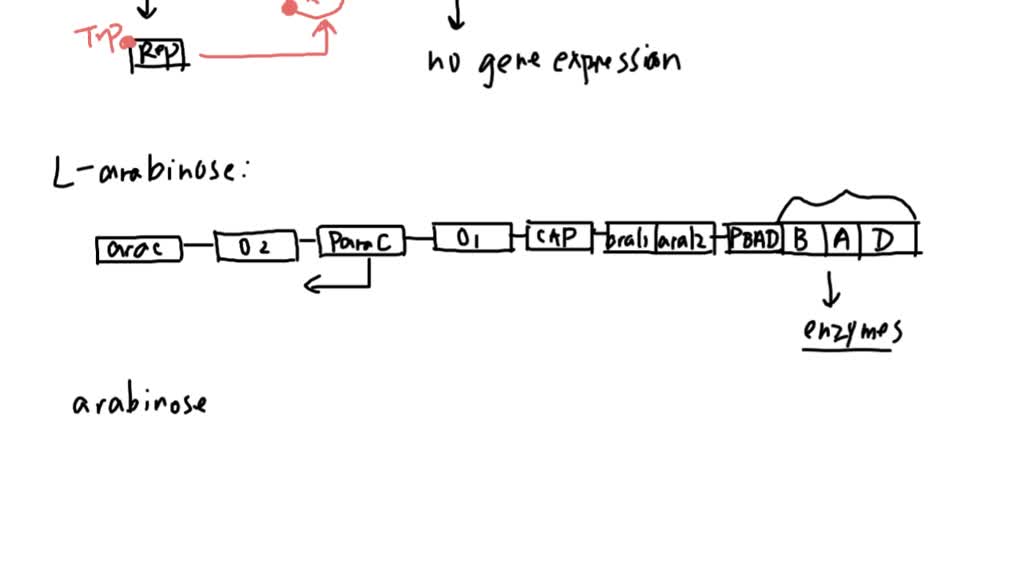 Trp
Rep
no gene expression
L-arabinose:
arac O2 ParaC O1 CAP braI1 araI2 PBAD B A D
enzymes
arabinose